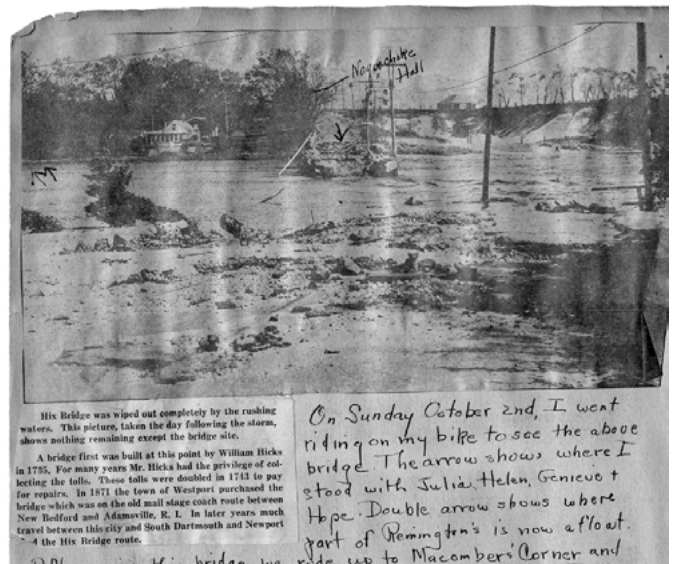 Noquochoke
Hall
Hix Bridge was wiped out completely by the rushing
waters. This picture, taken the day following the storm,
shows nothing remaining except the bridge site.
A bridge first was built at this point by William Hicks
in 1735. For many years Mr. Hicks had the privilege of col-
lecting the tolls. These tolls were doubled in 1743 to pay
for repairs. In 1871 the town of Westport purchased the
bridge which was on the old mail stage coach route between
New Bedford and Adamsville, R. I. In later years much
travel between this city and South Dartmouth and Newport
the Hix Bridge route.
On Sunday October 2nd, I went
riding on my bike to see the above
bridge. The arrow shows where I
stood with Julia, Helen, Genieve +
Hope. Double arrow shows where
part of Remington's is now afloat.
this bridge we rode up to Macombers' Corner and